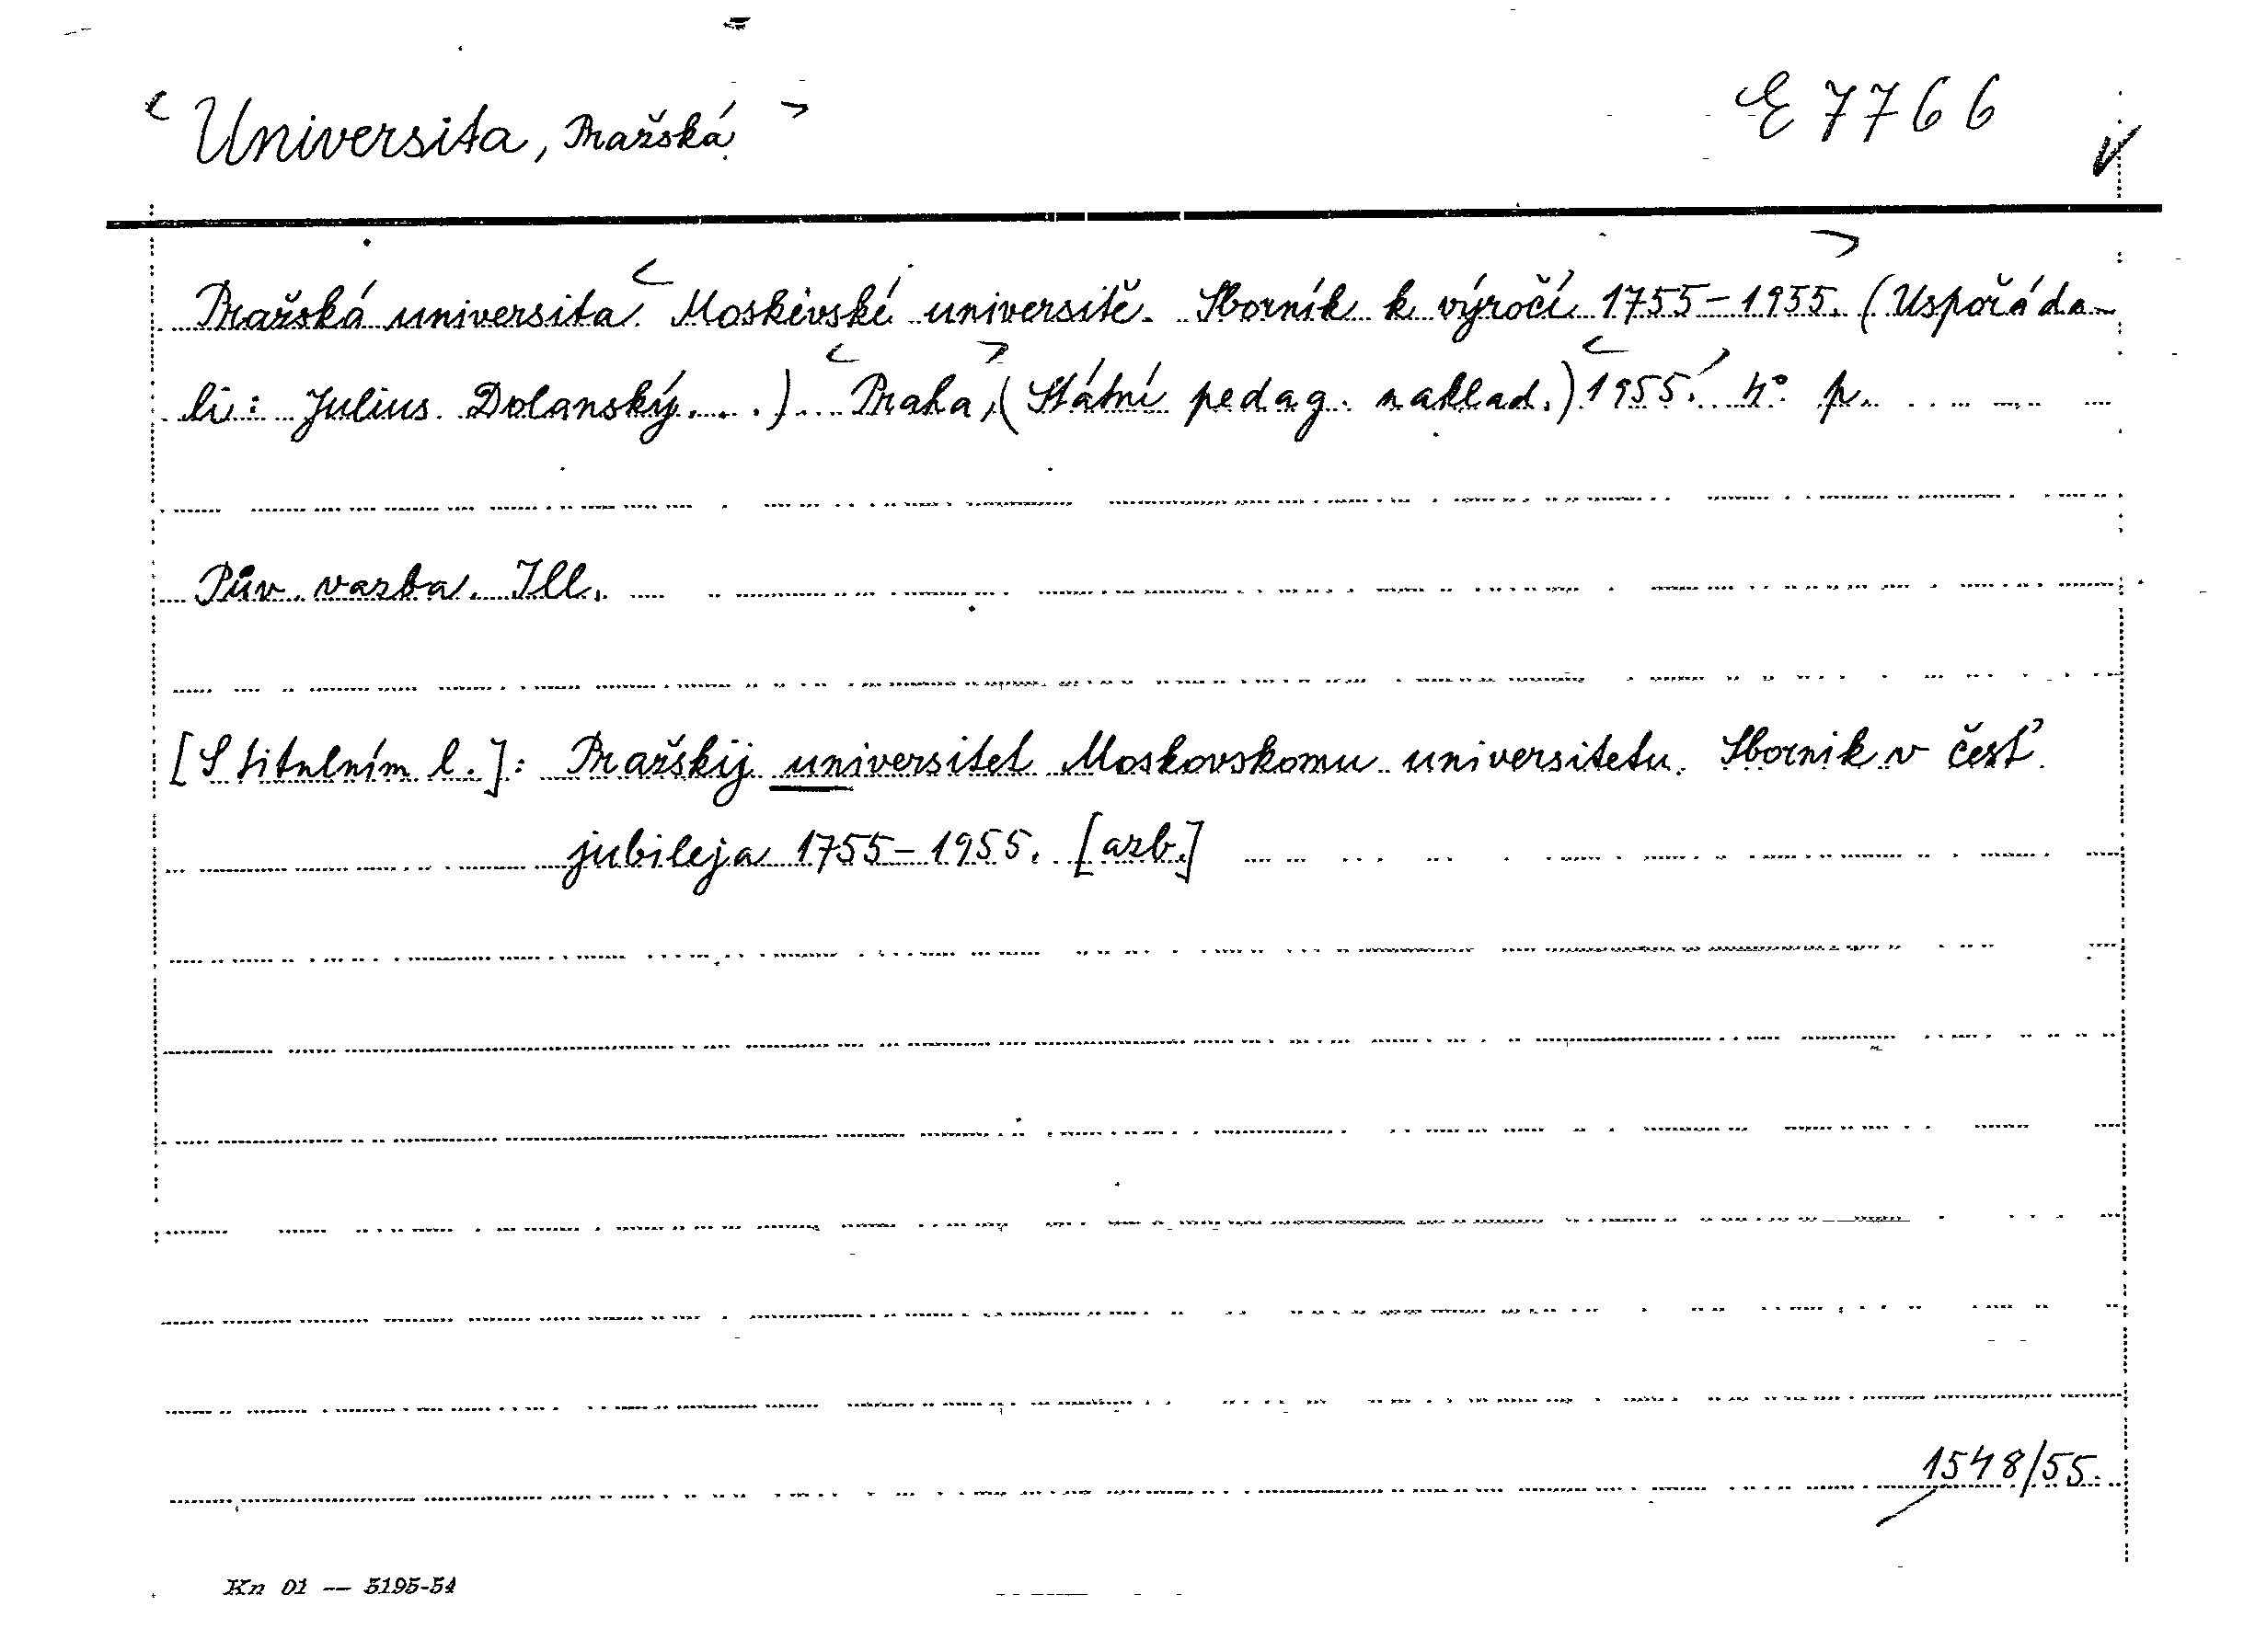 < Universita, Pražská > E 7766
Pražská universita < Moskevské universitě. Sborník k výročí 1755-1955. > (Uspořáda-
li: Julius Dolanský...) < Praha, > (Státní pedag. naklad.) < 1955. > 4° p.
Pův. vazba. Ill.
[S titulním l.]: Pražskij universitet Moskovskomu universitetu. Sbornik v česť
jubileja 1755-1955. [azb.]
1548/55.
Kn 01 — 5195-54